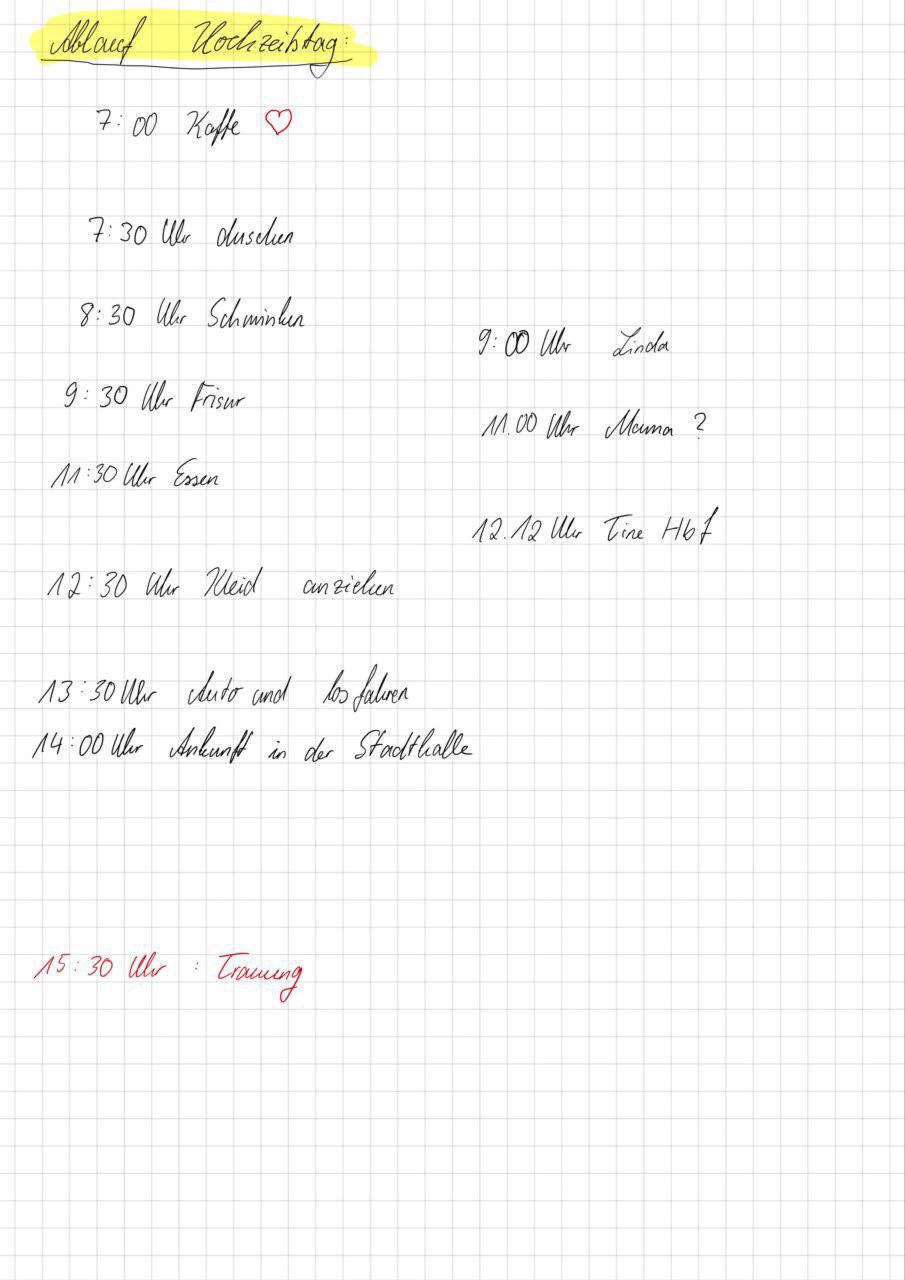 Ablauf Hochzeitstag:
7:00 Kaffe ♡
7:30 Uhr duschen
8:30 Uhr Schminken
9:00 Uhr Linda
9:30 Uhr Frisur
11.00 Uhr Mama ?
11:30 Uhr Essen
12.12 Uhr Tine Hbf
12:30 Uhr Kleid anziehen
13:30 Uhr Auto und losfahren
14:00 Uhr Ankunft in der Stadthalle
15:30 Uhr : Trauung